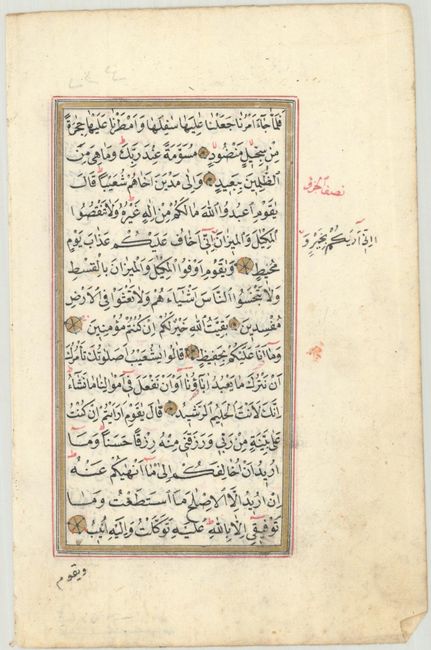 فَلَمَّا جَآءَ اَمْرُنَا جَعَلْنَا عَالِيَهَا سَافِلَهَا وَاَمْطَرْنَا عَلَيْهَا حِجَارَةً
مِنْ سِجِّيلٍ مَنْضُودٍ مُسَوَّمَةً عِنْدَ رَبِّكَ وَمَا هِىَ مِنَ
الظَّالِمِينَ بِبَعِيدٍ وَاِلٰى مَدْيَنَ اَخَاهُمْ شُعَيْبًا قَالَ
يَقَوْمِ اعْبُدُوا اللّٰهَ مَا لَكُمْ مِنْ اِلٰهٍ غَيْرُهُ وَلَا تَنْقُصُوا
الْمِكْيَالَ وَالْمِيزَانَ اِنِّى اَخَافُ عَلَيْكُمْ عَذَابَ يَوْمٍ
مُحِيطٍ وَيَقَوْمِ اَوْفُوا الْمِكْيَالَ وَالْمِيزَانَ بِالْقِسْطِ
وَلَا تَبْخَسُوا النَّاسَ اَشْيَآءَهُمْ وَلَا تَعْثَوْا فِى الْاَرْضِ
مُفْسِدِينَ بَقِيَّتُ اللّٰهِ خَيْرٌ لَكُمْ اِنْ كُنْتُمْ مُؤْمِنِينَ
وَمَآ اَنَا عَلَيْكُمْ بِحَفِيظٍ قَالُوا يٰشُعَيْبُ اَصَلٰوتُكَ تَأْمُرُكَ
اَنْ نَتْرُكَ مَا يَعْبُدُ اٰبَآؤُنَا اَوْ اَنْ نَفْعَلَ فِى اَمْوَالِنَا مَا نَشَآءُ
اِنَّكَ لَاَنْتَ الْحَلِيمُ الرَّشِيدُ قَالَ يَقَوْمِ اَرَاَيْتُمْ اِنْ كُنْتُ
عَلٰى بَيِّنَةٍ مِنْ رَبِّى وَرَزَقَنِى مِنْهُ رِزْقًا حَسَنًا وَمَآ
اُرِيدُ اَنْ اُخَالِفَكُمْ اِلٰى مَآ اَنْهٰيكُمْ عَنْهُ
اِنْ اُرِيدُ اِلَّا الْاِصْلَاحَ مَا اسْتَطَعْتُ وَمَا
تَوْفِيقِى اِلَّا بِاللّٰهِ عَلَيْهِ تَوَكَّلْتُ وَاِلَيْهِ اُنِيبُ
نصف الحزب
اِنِّى اَرٰيكُمْ بِخَيْرٍ وَ
ويقوم